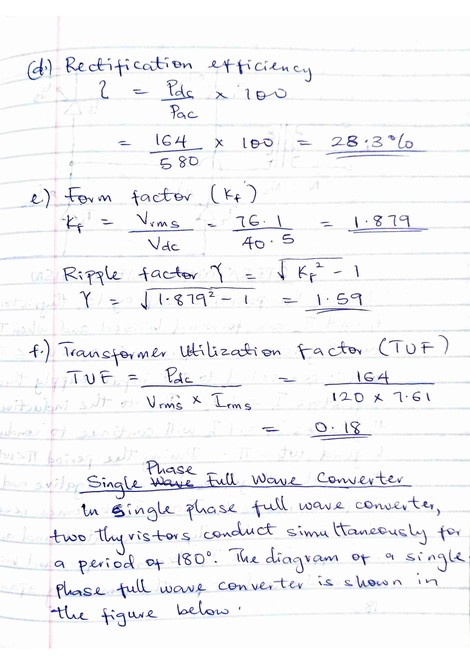 (d.) Rectification efficiency
η = Pdc / Pac × 100
= 164 / 580 × 100 = 28.3%
e.) Form factor (Kf)
Kf = Vrms / Vdc = 76.1 / 40.5 = 1.879
Ripple factor γ = √Kf² - 1
γ = √1.879² - 1 = 1.59
f.) Transformer Utilization Factor (TUF)
TUF = Pdc / Vrms × Irms = 164 / 120 × 7.61
= 0.18
Single Phase Full Wave Converter
In single phase full wave converter,
two thyristors conduct simultaneously for
a period of 180°. The diagram of a single
phase full wave converter is shown in
the figure below.